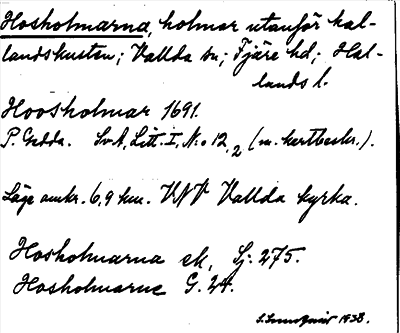 Hosholmarna, holmar utanför hal-
landskusten; Vallda sn; Fjäre hd; Hal-
lands l.
Hoosholmar 1691.
P. Gedda. SvA, Litt. I, N:o 12,2 (m. kartbeskr.).
Läge omkr. 6,9 km. VNV Vallda kyrka.
Hosholmarna ek. Sj. 275.
Hosholmarne G. 24.
1938.